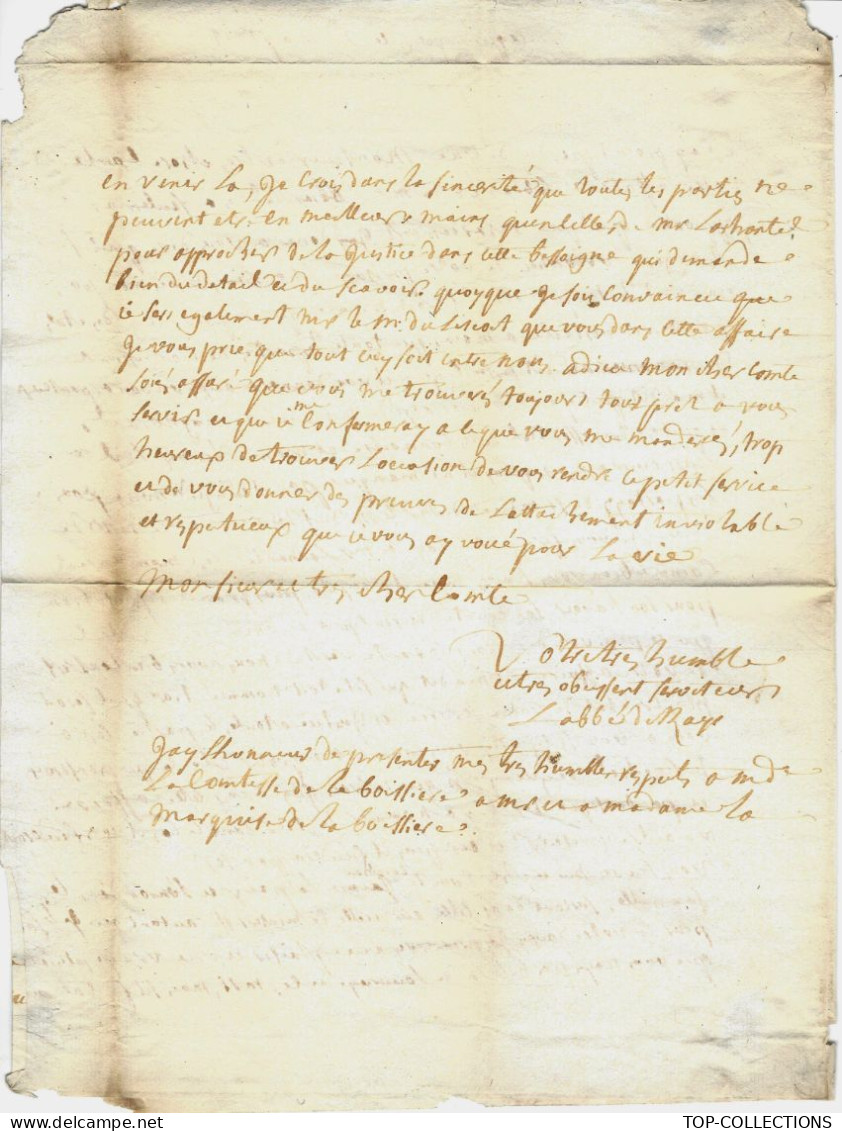 en venir La, Je Crois dans la sincerité que toutes les parties ne
peuvent etre en meilleures mains qu'en celles de mr
pour approcher de la Justice dans cette bessoigne qui demande
bien du detail et du scavoir. quoyque Je sois Convaincu que
ie sers egalement mr le m. du Liscoet que vous dans cette affaire
Je vous prie que tout cecy soit entre nous. adieu mon cher Comte
soiés assuré que vous me trouverés toujours tout prest a vous
servir. et que ie me Conformeray a ce que vous me manderés, trop
heureux de trouver Loccation de vous rendre ce petit service
et de vous donner des preuves de Lattachement inviolable
et respectueux que ie vous ay voué pour La vie
Monsieur et tres cher Comte
Votre tres humble
et tres obeissent serviteur
Labbé de
Jay Lhonneur de presenter mes tres humbles respects a mde
La Comtesse de la boissiere a mr et a madame la
Marquise de la boissiere.
TOP-COLLECTIONS